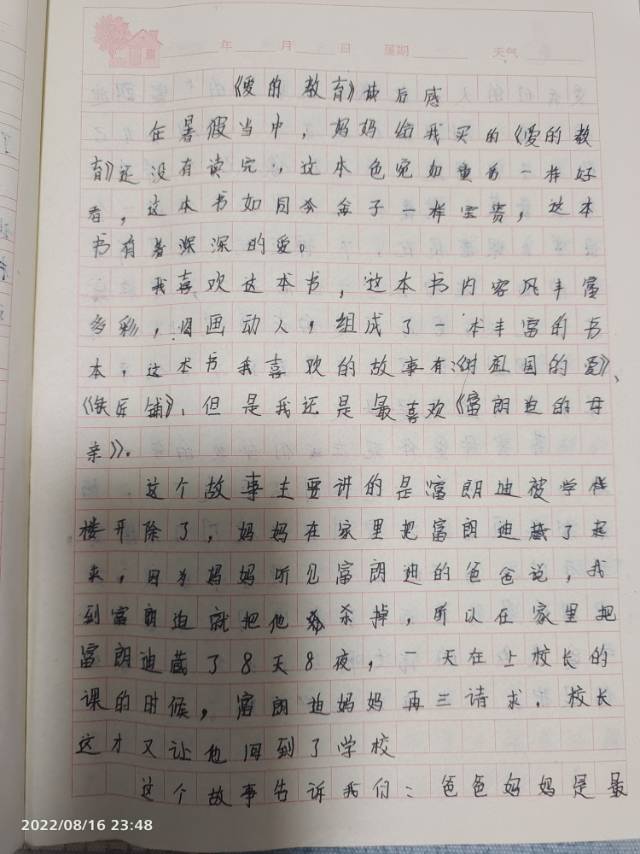 年 月 日 星期 天气
《爱的教育》读后感
在暑假当中，妈妈给我买的《爱的教
育》还没有读完，这本色宛如一样好
看，这本书如同金子一样宝贵，这本
书有着深深的爱。
我喜欢这本书，这本书内容风丰富
多彩，图画动人，组成了一本丰富的书
本，这本书我喜欢的故事有《对祖国的爱》、
《铁匠铺》，但是我还是最喜欢《富朗迪的母
亲》。
这个故事主要讲的是富朗迪被学校
楼开除了，妈妈在家里把富朗迪藏了起
来，因为妈妈听见富朗迪的爸爸说，我
到富朗迪就把他杀掉，所以在家里把
富朗迪藏了8天8夜，一天在上校长的
课的时候，富朗迪妈妈再三请求，校长
这才又让他回到了学校
这个故事告诉我们：爸爸妈妈是最
2022/08/16 23:48